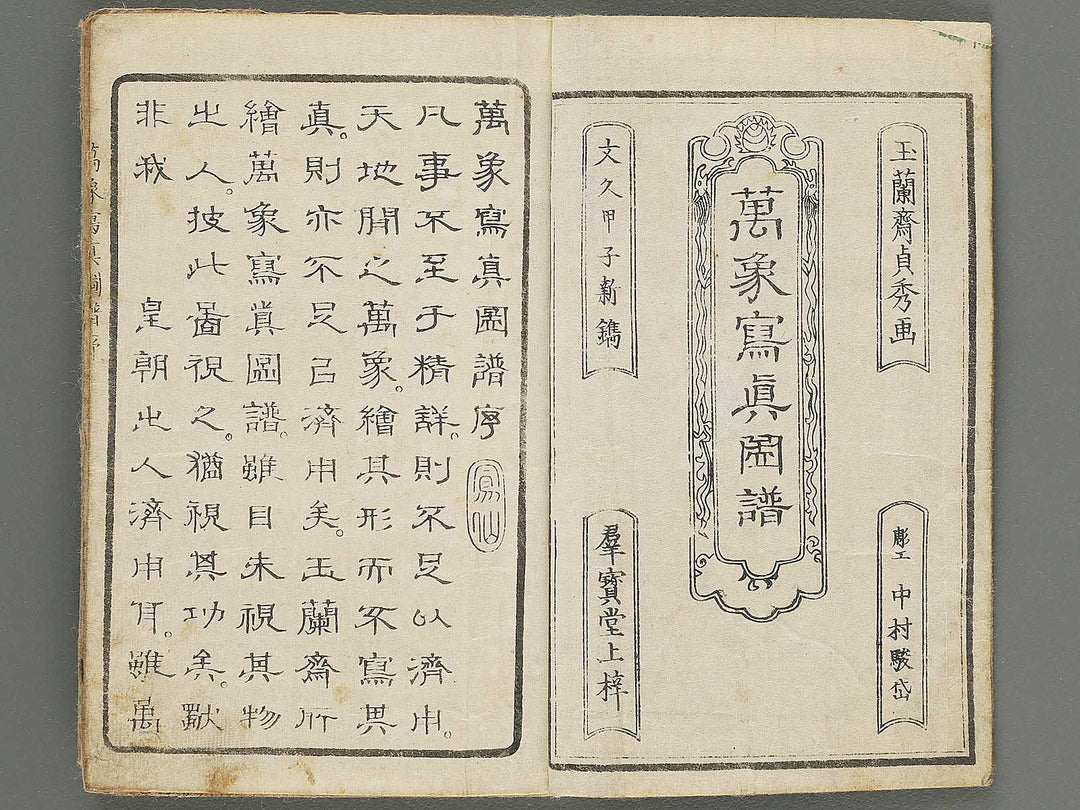 玉蘭齋貞秀画
彫工 中村駿岱
萬象寫眞圖譜
文久甲子新鐫
羣寶堂上梓
萬象寫真圖譜序
鳳仙
凡事不至于精詳。則不足以濟用。
天地間之萬象。繪其形而不寫其
真。則亦不足己濟用矣。玉蘭齋所
繪萬象寫真圖譜。雖目未視其物
之人。披此圖視之。猶視其功矣。獸
非我 皇朝之人濟用耳。雖萬
萬象寫真圖譜序